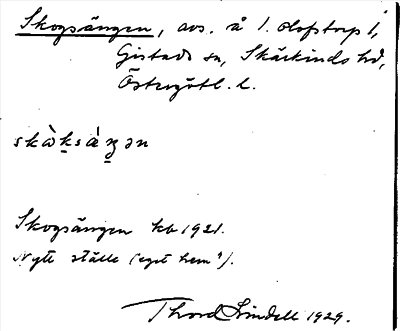 Skogsängen, avs. å 1. Olofstorp 1,
Gistads sn, Skärkinds hd,
Östergötl. l.
skàksáŋən
Skogsängen kb 1921.
Nytt ställe (eget hem").
Thord Lindell 1929.